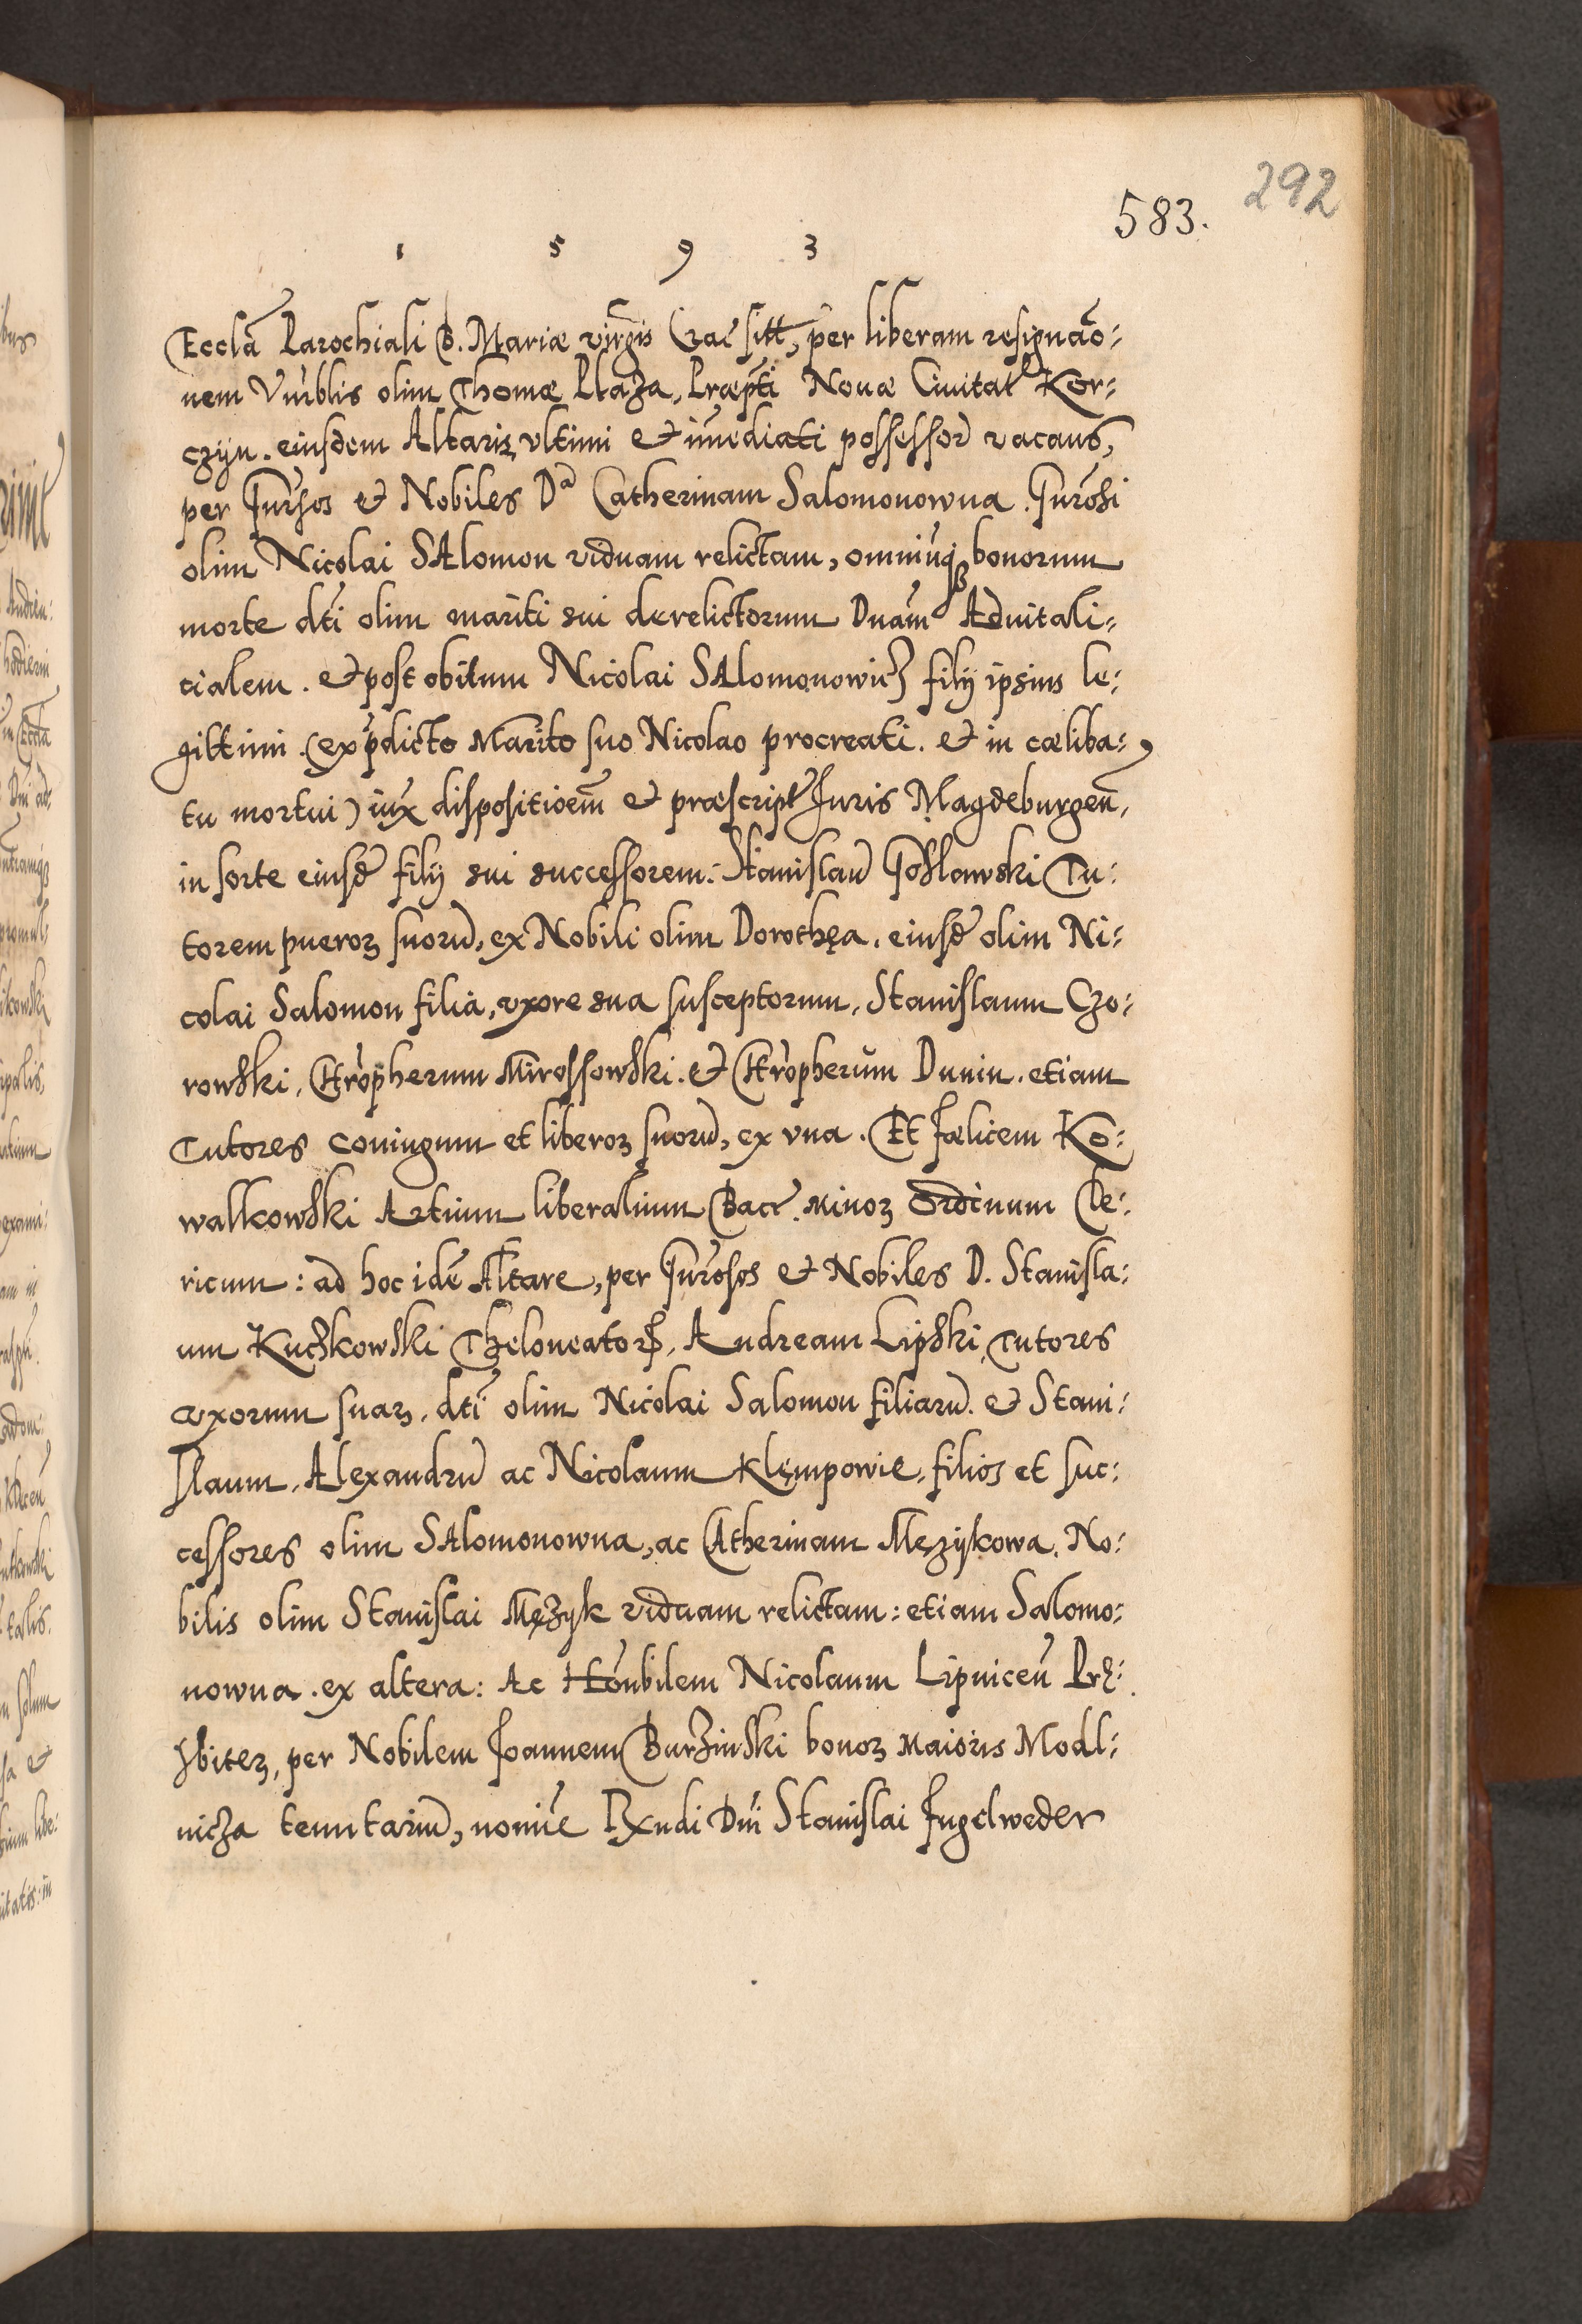 292
583.
1 5 9 3
Ecclã Parochiali B. Mariæ virgĩs Crac̃ sitt, per liberam resignaõ:
nem Vnĩblis olim Thomæ Płaza, Præpt̃i Nouæ Ciuitat̃ Kor:
czyn. eiusdem Altaris, vltimi et im̃ediati possessor̃ vacans,
per Gnr̃sos et Nobiles Dã Catherinam Salomonowna. Gnr̃osi
olim Nicolai SAlomon viduam relictam, omniũq3 bonorum
morte dt̃i olim mariti sui derelictorum Dnãm Aduitali:
cialem. et post obitum Nicolai SAlomonowicz filij ipsius le:
gittimi. (ex p̃dicto Marito suo Nicolao procreati. et in cæliba:
tu mortui) iux̃ dispositioẽm et præscript̃ Juris Magdeburgeñ,
in sorte eiusd̃ filij sui successorem: Stanislaũ Goslawski Tu:
torem pueroꝝ suorũ, ex Nobili olim Dorothęa. eiusd̃ olim Ni:
colai Salomon filia, vxore sua susceptorum, Stanislaum Czo:
rowski, Chrõpherum Mirossowski. et Chrõpherum Dunin. etiam
Tutores coniugum et liberoꝝ suorũ, ex vna. Et Fælicem Ko:
walkowski Artium liberalium Bacc̃. Minoꝝ Ordinum Cle:
ricum: ad hoc idẽ Altare, per Gnr̃osos et Nobiles D. Stanisla:
um Kuczkowski Theloneatorẽ, Andream Lipski, Tutores
vxorum suaꝝ, dt̃i olim Nicolai Salomon filiarũ. et Stani:
slaum, Alexandrũ ac Nicolaum Klęmpowie, filios et suc:
cessores olim SAlomonowna, ac CAtherinam Męzykowa. No:
bilis olim Stanislai Mężyk viduam relictam: etiam Salomo:
nowna. ex altera: Ac Honõbilem Nicolaum Lipniceñ Prę:
sbiteꝝ, per Nobilem Joannem Burzinski bonoꝝ Maioris Modl:
nicza tenutariũ, nomĩe Rx̃ndi Dñi Stanislai Fugelweder